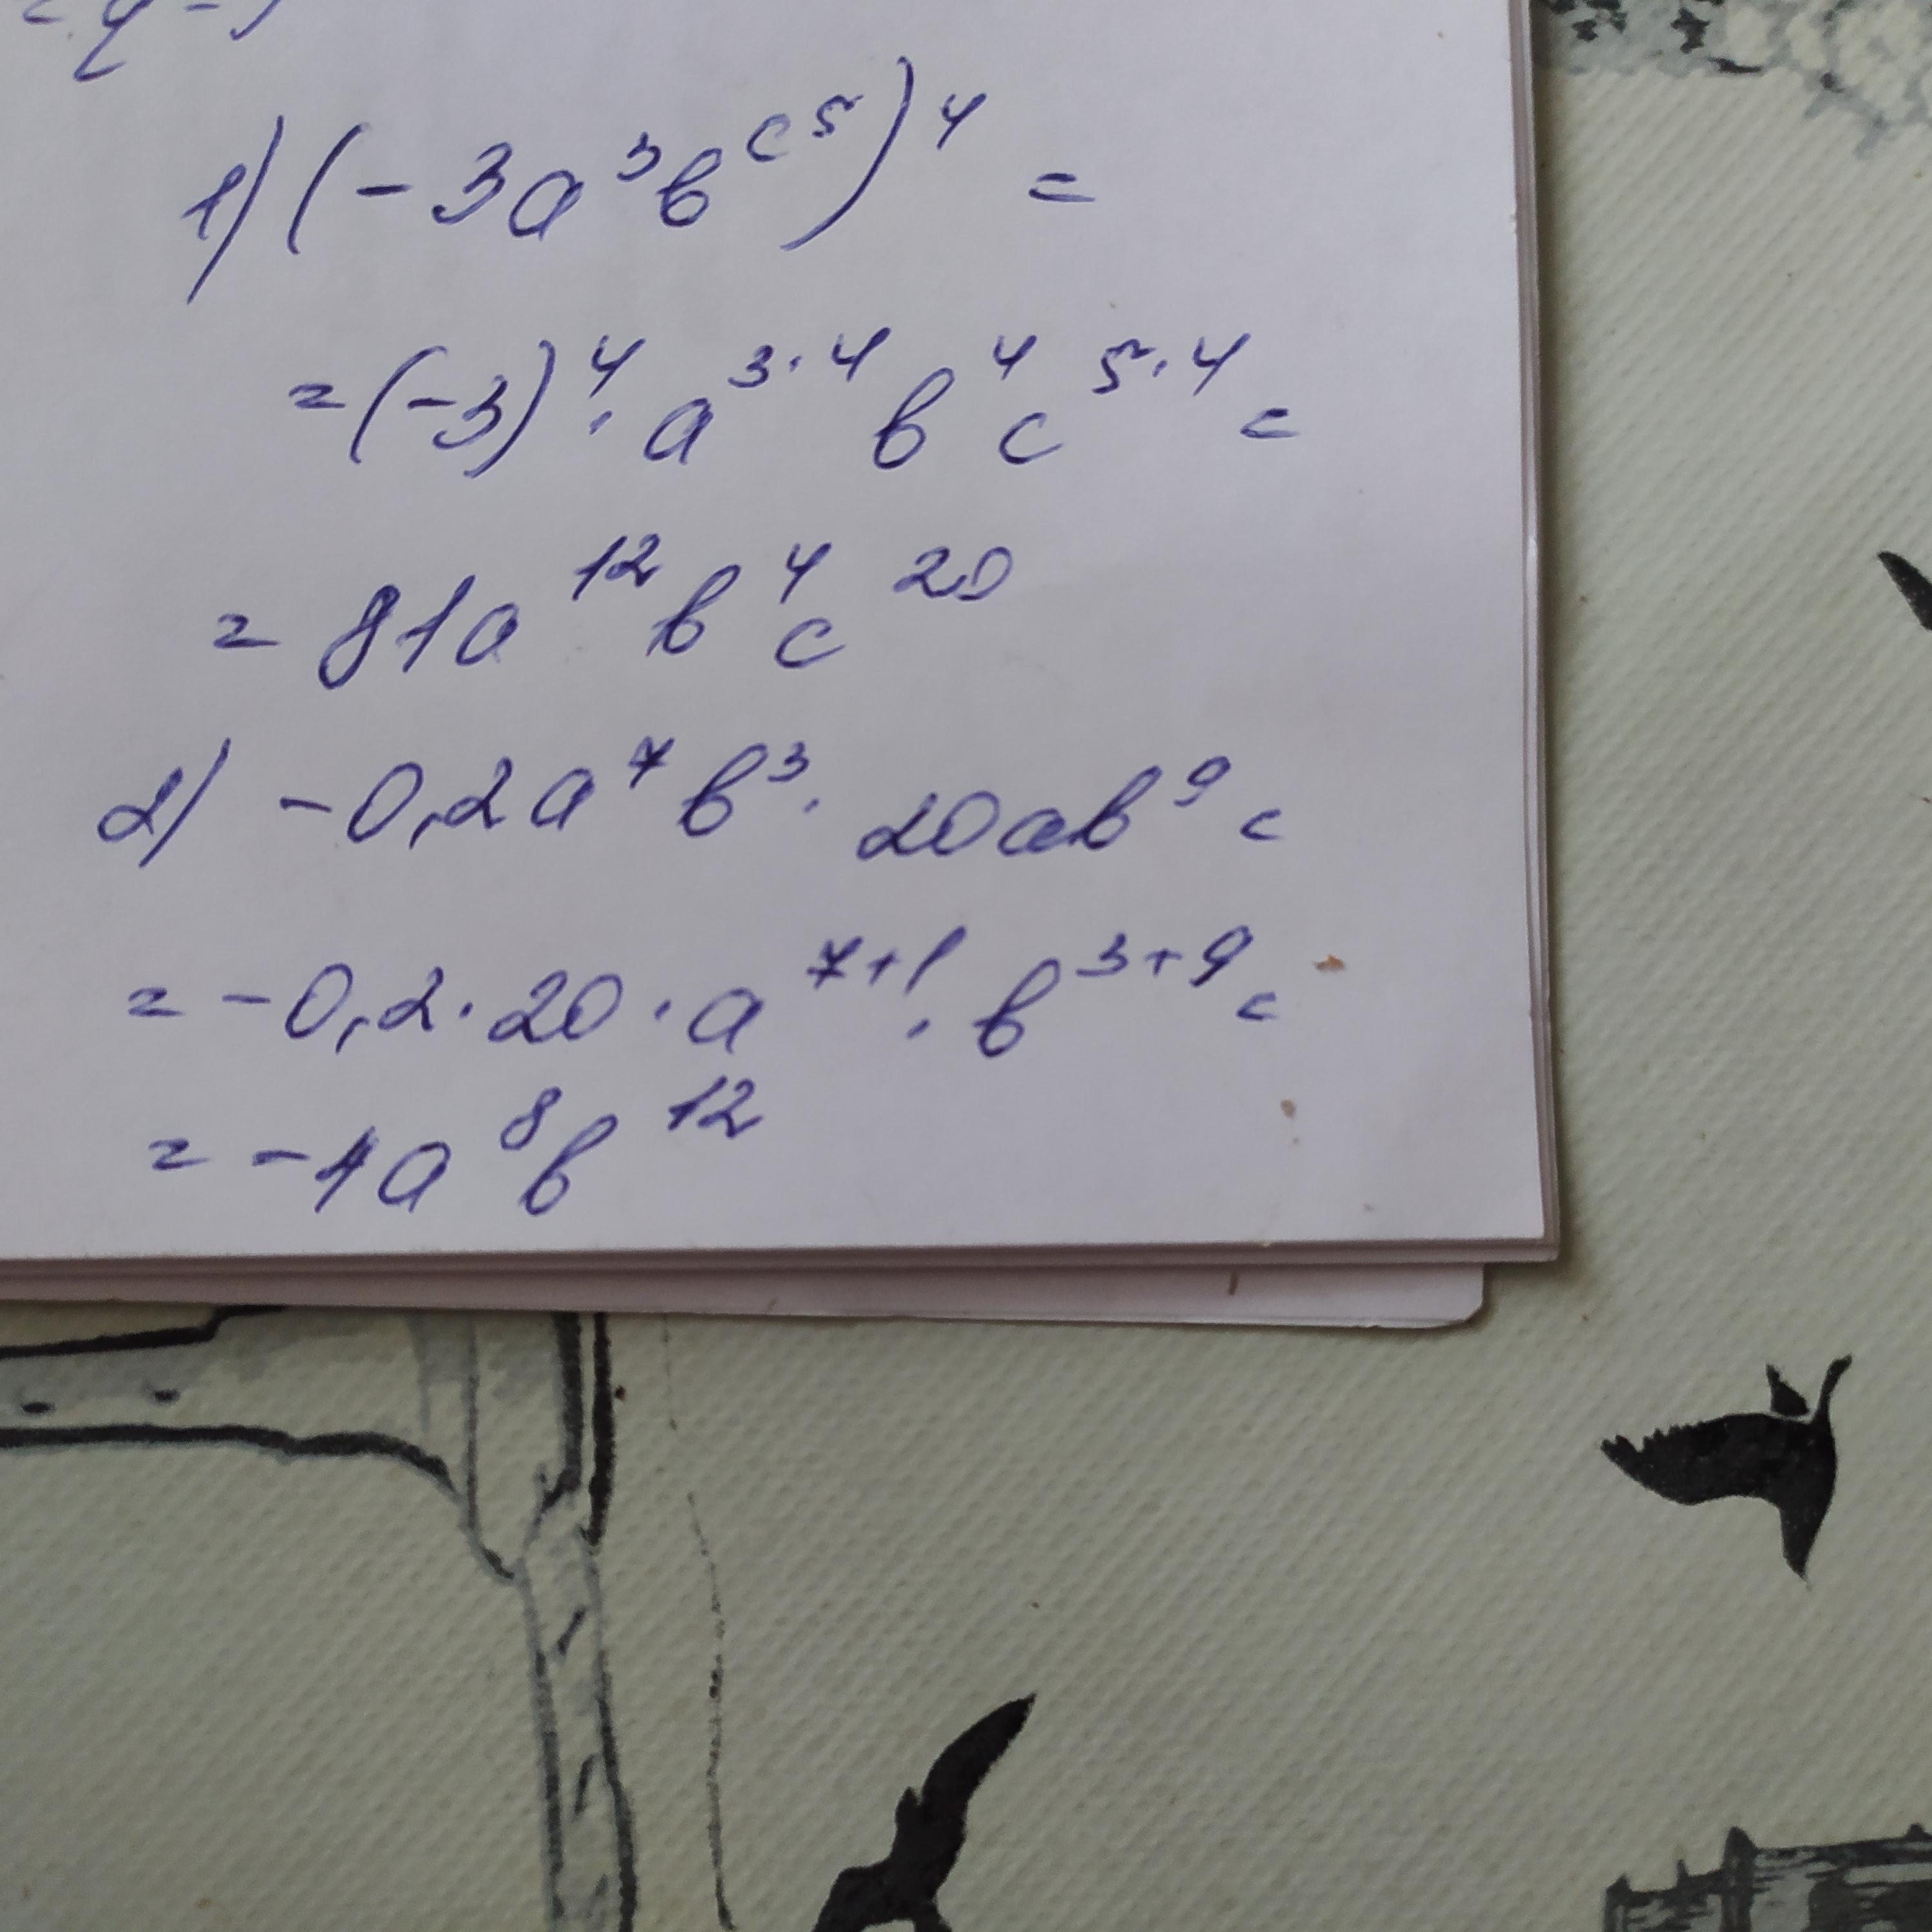 1) (-3a³b^c⁵)⁴ =
= (-3)⁴ · a³·⁴ b⁴ c⁵·⁴ =
= 81a¹² b⁴ c²⁰
2) -0,2a⁷ b³ · 20ab⁹ =
= -0,2 · 20 · a⁷⁺¹ · b³⁺⁹ =
= -4a⁸b¹²